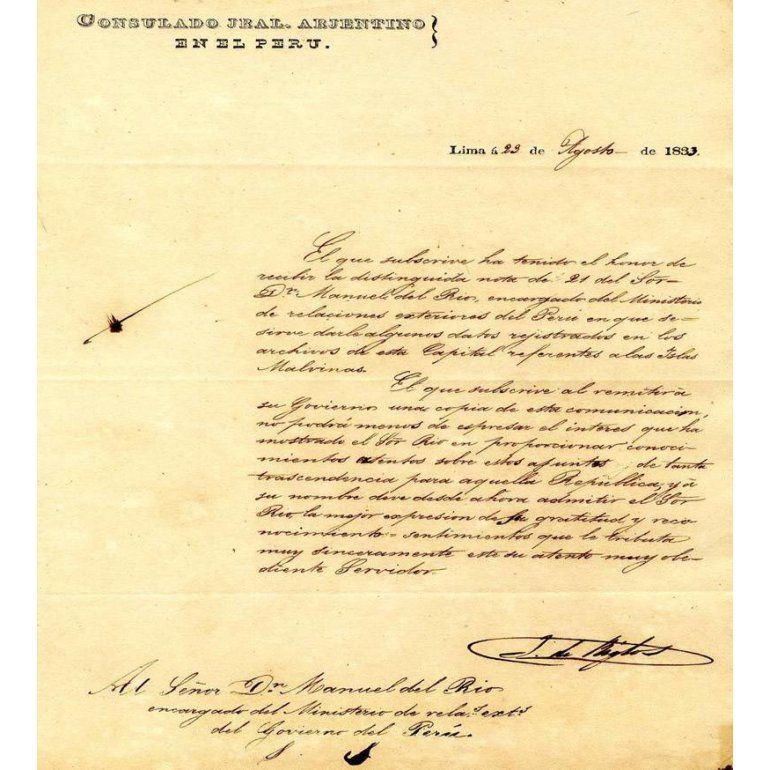 CONSULADO JRAL. ARJENTINO
EN EL PERU.
Lima á 23 de Agosto de 1833.
El que subscrive ha tenido el honor de
recibir la distinguida nota de 21 del Sor
Dr. Manuel del Rio, encargado del Ministerio
de relaciones exteriores del Perú en que se
sirve darle algunos datos rejistrados en los
archivos de esta Capital referentes a las Yslas
Malvinas.
El que subscrive al remitir á
su Govierno una copia de esta comunicacion,
no podrá menos de espresar el interes que ha
mostrado el Sor Rio en proporcionar conoci-
mientos atentos sobre estos apuntes, de tanta
trascendencia para aquella República, y á
su nombre deve desde ahora admitir el Sor
Rio, la mejor expresion de su gratitud y reco
nocimiento sentimientos que le tributa
muy sinceramente este su atento muy obe-
diente Servidor.
J. de
Al Señor Dn Manuel del Rio
encargado del Ministerio de relas. exts.
del Govierno del Perú.